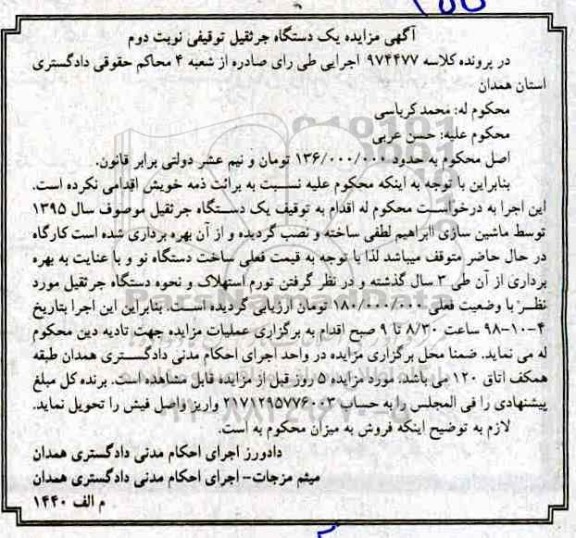 آگهی مزایده یک دستگاه جرثقیل توقیفی نوبت دوم
در پرونده کلاسه ۹۷۴۴۷۷ اجرایی طی رای صادره از شعبه ۴ محاکم حقوقی دادگستری
استان همدان
محکوم له: محمد کرباسی
محکوم علیه: حسن عربی
اصل محکوم به حدود ۱۳۶/۰۰۰/۰۰۰ تومان و نیم عشر دولتی برابر قانون.
بنابراین با توجه به اینکه محکوم علیه نسبت به برائت ذمه خویش اقدامی نکرده است.
این اجرا به درخواست محکوم له اقدام به توقیف یک دستگاه جرثقیل موصوف سال ۱۳۹۵
توسط ماشین سازی ابراهیم لطفی ساخته و نصب گردیده و از آن بهره برداری شده است کارگاه
در حال حاضر متوقف میباشد لذا با توجه به قیمت فعلی ساخت دستگاه نو و با عنایت به بهره
برداری از آن طی ۳ سال گذشته و در نظر گرفتن تورم استهلاک و نحوه دستگاه جرثقیل مورد
نظر با وضعیت فعلی ۱۸۰/۰۰۰/۰۰۰ تومان ارزیابی گردیده است. بنابراین این اجرا بتاریخ
۹۸-۱۰-۴ ساعت ۸/۳۰ تا ۹ صبح اقدام به برگزاری عملیات مزایده جهت تادیه دین محکوم
له می نماید. ضمنا محل برگزاری مزایده در واحد اجرای احکام مدنی دادگستری همدان طبقه
همکف اتاق ۱۲۰ می باشد. مورد مزایده ۵ روز قبل از مزایده قابل مشاهده است. برنده کل مبلغ
پیشنهادی را فی المجلس را به حساب ۲۱۷۱۲۹۵۷۷۶۰۰۳ واریز واصل فیش را تحویل نماید.
لازم به توضیح اینکه فروش به میزان محکوم به است.
دادورز اجرای احکام مدنی دادگستری همدان
میثم مزجات- اجرای احکام مدنی دادگستری همدان
م الف ۱۴۴۰
ParsNamadData